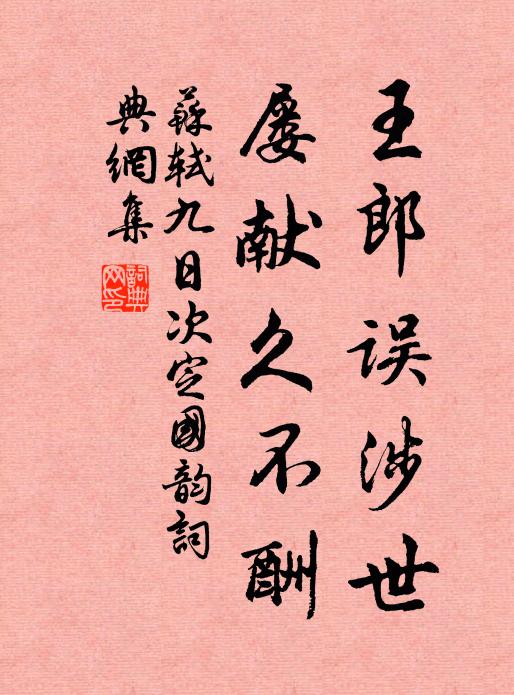 王郎误涉世
屡献久不酬
蘇軾九日次定國韵詞
典網集
詞典网印